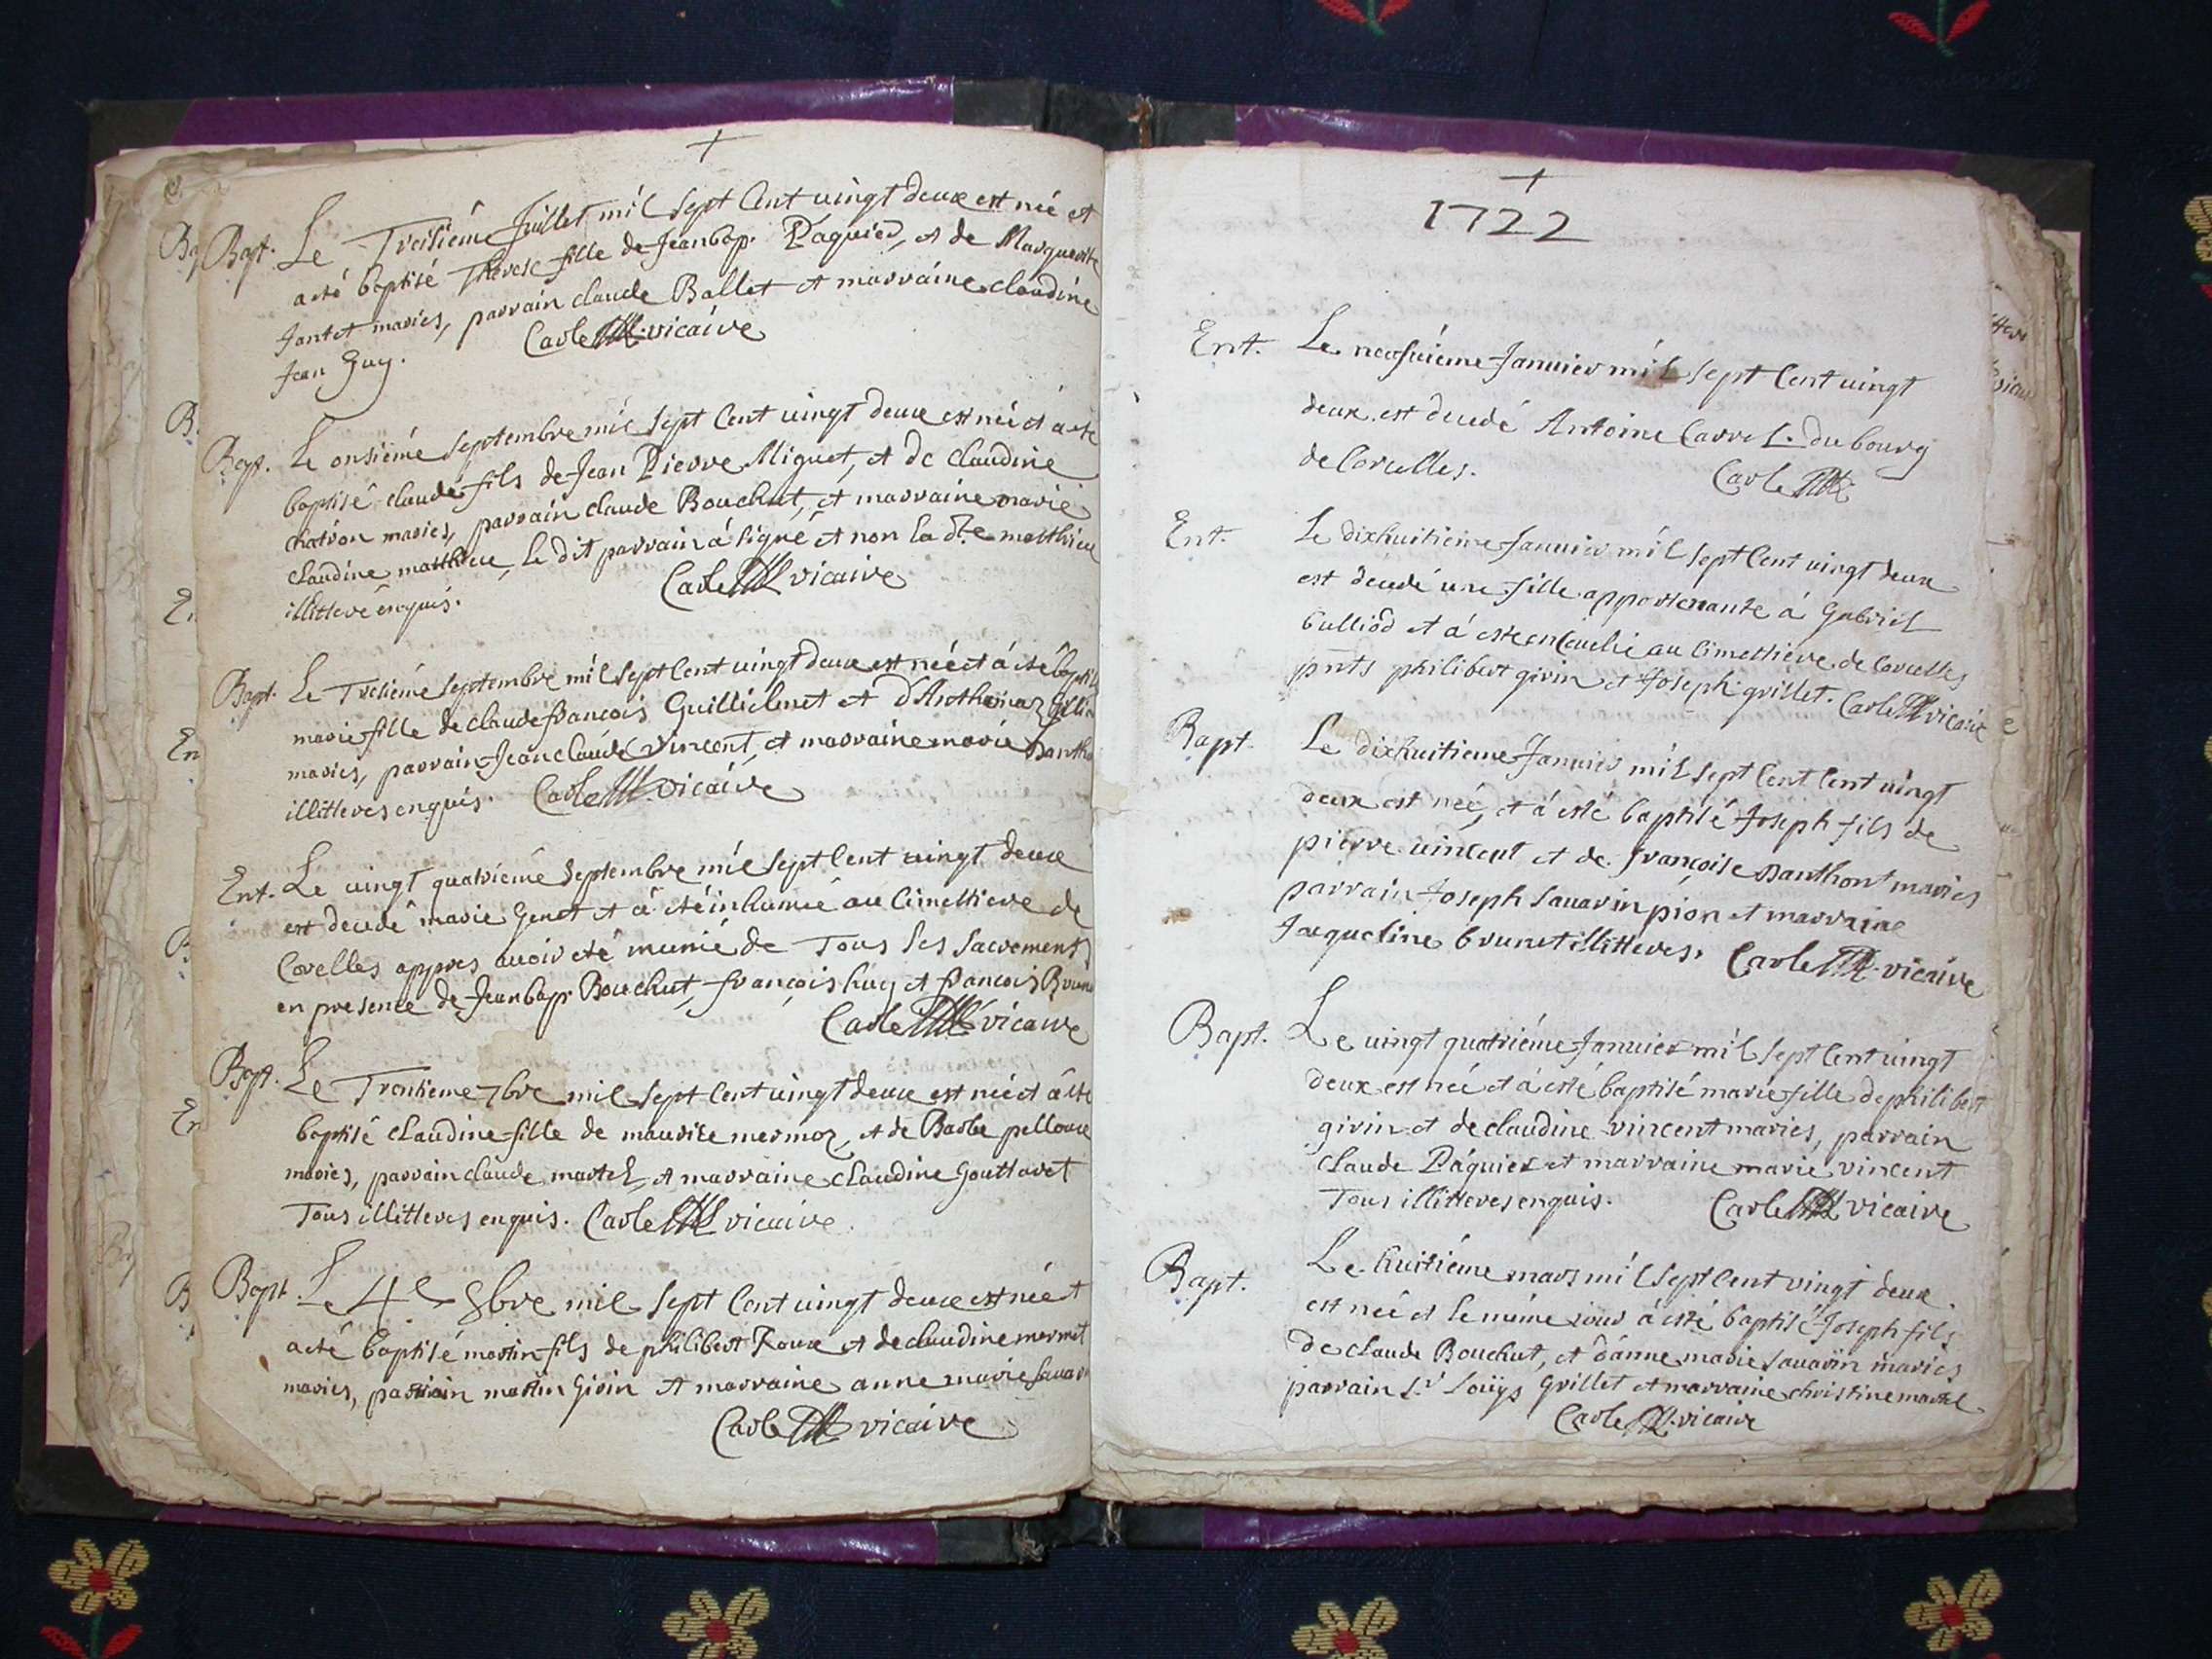 Bapt. Le Treisiéme Juillet mil sept Cent uingt deux est neé et
a eté baptisé Therese fille de Jeanbap. Paquier, et de Marguerite
Jantet mariés, parrain claude Ballet et marraine claudine
Jean Guy. Carle vicaire
Bapt. Le onsiéme septembre mil sept Cent uingt deux est né et a eté
baptisé claude fils de Jean Pierre Miguet, et de Claudine
chatron mariés, parrain claude Bouchut, et marraine marie
claudine matthieu, le dit parrain á signé et non la d.te matthieu
illitteré enquis. Carle vicaire
Bapt. Le Tresiéme septembre mil sept Cent uingt deux est née et á eté baptisé
marie fille de claude francois Guillielmet et d'Anthoinaz
mariés, parrain Jean claude vincent, et marraine marie
illitteres enquis. Carle vicaire
Ent. Le uingt quatriéme Septembre mil sept Cent uingt deux
est decedé marie Genet et á eté inhumée au Cimettiere de
Corcelles appres auoir eté munié de Tous ses Sacrements
en presence de Jeanbap. Bouchut, françois huy et francois
Carle vicaire
Bapt. Le Trentieme 7bre mil sept Cent uingt deux est née et á eté
baptisé claudine fille de maurice mermoz, et de Barbe pelloux
mariés, parrain claude martel, et marraine claudine Gouttaret
Tous illitteres enquis. Carle vicaire.
Bapt. Le 4e 8bre mil sept Cent uingt deux est né et
a eté baptisé martin fils de philibert Roux et de claudine mermet
mariés, parrain martin Girin et marraine anne marie
Carle vicaire
1722
Ent. Le neufuieme Januier mil sept Cent uingt
deux est decedé Antoine Carrel du bourg
de Corcelles. Carle
Ent. Le dixhuitieme Januier mil sept Cent uingt deux
est decedé une fille appartenante á Gabriel
Bulliod et á esté enseuelie au Cimettiere de Corcelles
pnts philibert girin et Joseph grillet. Carle vicaire
Bapt. Le dixhuitieme Januier mil sept Cent Cent uingt
deux est neé, et á esté baptisé Joseph fils de
pierre uincent et de françoise Danthont mariés
parrain Joseph sauarin pion et marraine
Jacqueline brunet illitteres. Carle vicaire
Bapt. Le uingt quatriéme Januier mil sept Cent uingt
deux est neé et á esté baptisé marie fille de philibert
girin et de claudine vincent mariés, parrain
claude Páquier et marraine marie vincent
Tous illitteres enquis. Carle vicaire
Bapt. Le huitiéme mars mil sept Cent vingt deux
est neé et le même iour á esté baptisé Joseph fils
de claude Bouchut, et d'anne marie sauarin mariés
parrain Sr Loüys Grillet et marraine christine martel
Carle vicaire